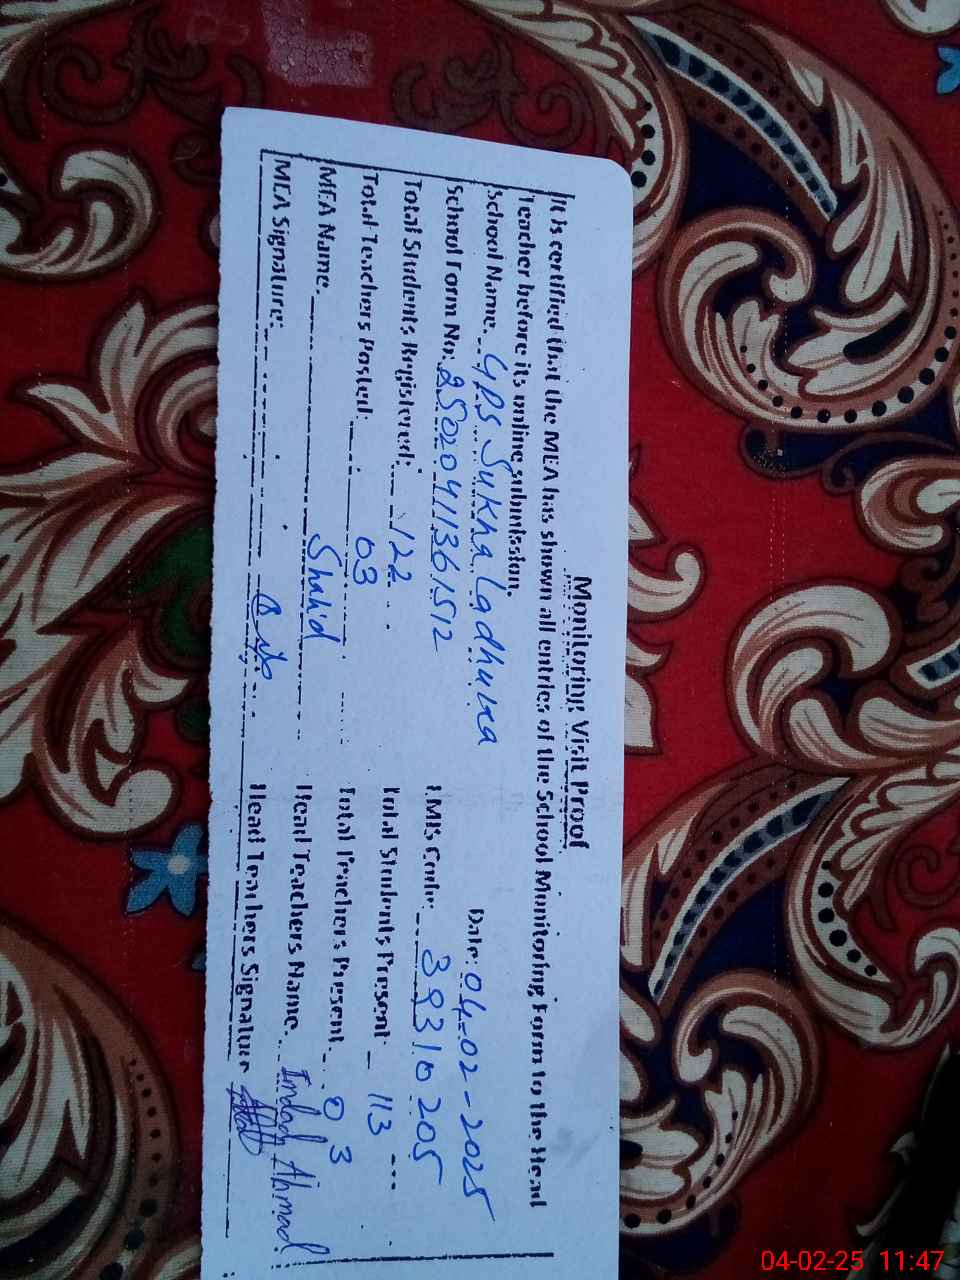 Monitoring Visit Proof
It is certified that the MEA has shown all entries of the School Monitoring Form to the Head
Teacher before its online submission.
School Name. GPS Sukha Ladhula Date: 04-02-2025
School Form No: 25020411361512 EMIS Code: 38310205
Total Students Registered: 122 Total Students Present: 113
Total Teachers Posted: 03 Total Teachers Present 03
MEA Name. Shahid Head Teachers Name. Imdad Ahmad
MEA Signature: Head Teachers Signature
04-02-25 11:47